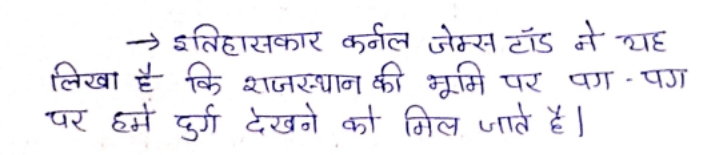 → इतिहासकार कर्नल जेम्स टॉड ने यह
लिखा है कि राजस्थान की भूमि पर पग - पग
पर हमें दुर्ग देखने को मिल जाते है।